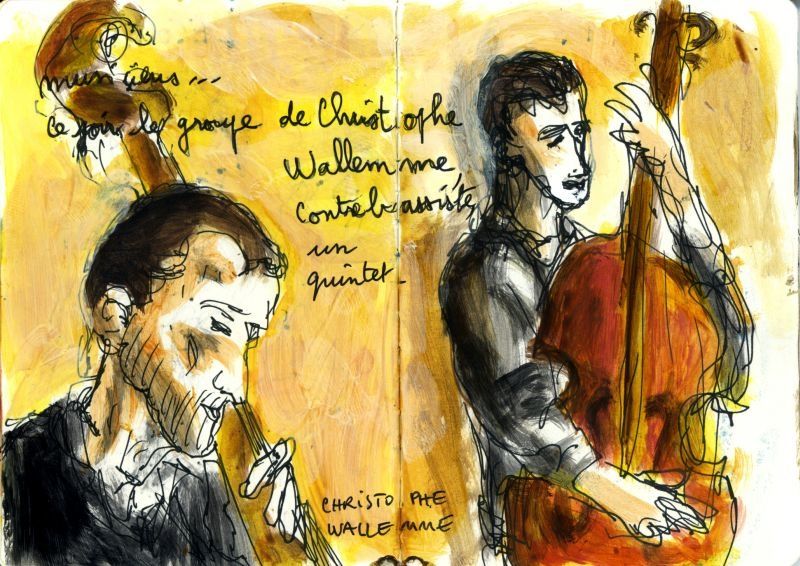 musiciens...
ce soir le groupe de Christophe
Wallemme,
contrebassiste,
un
quintet.
CHRISTOPHE
WALLEMME